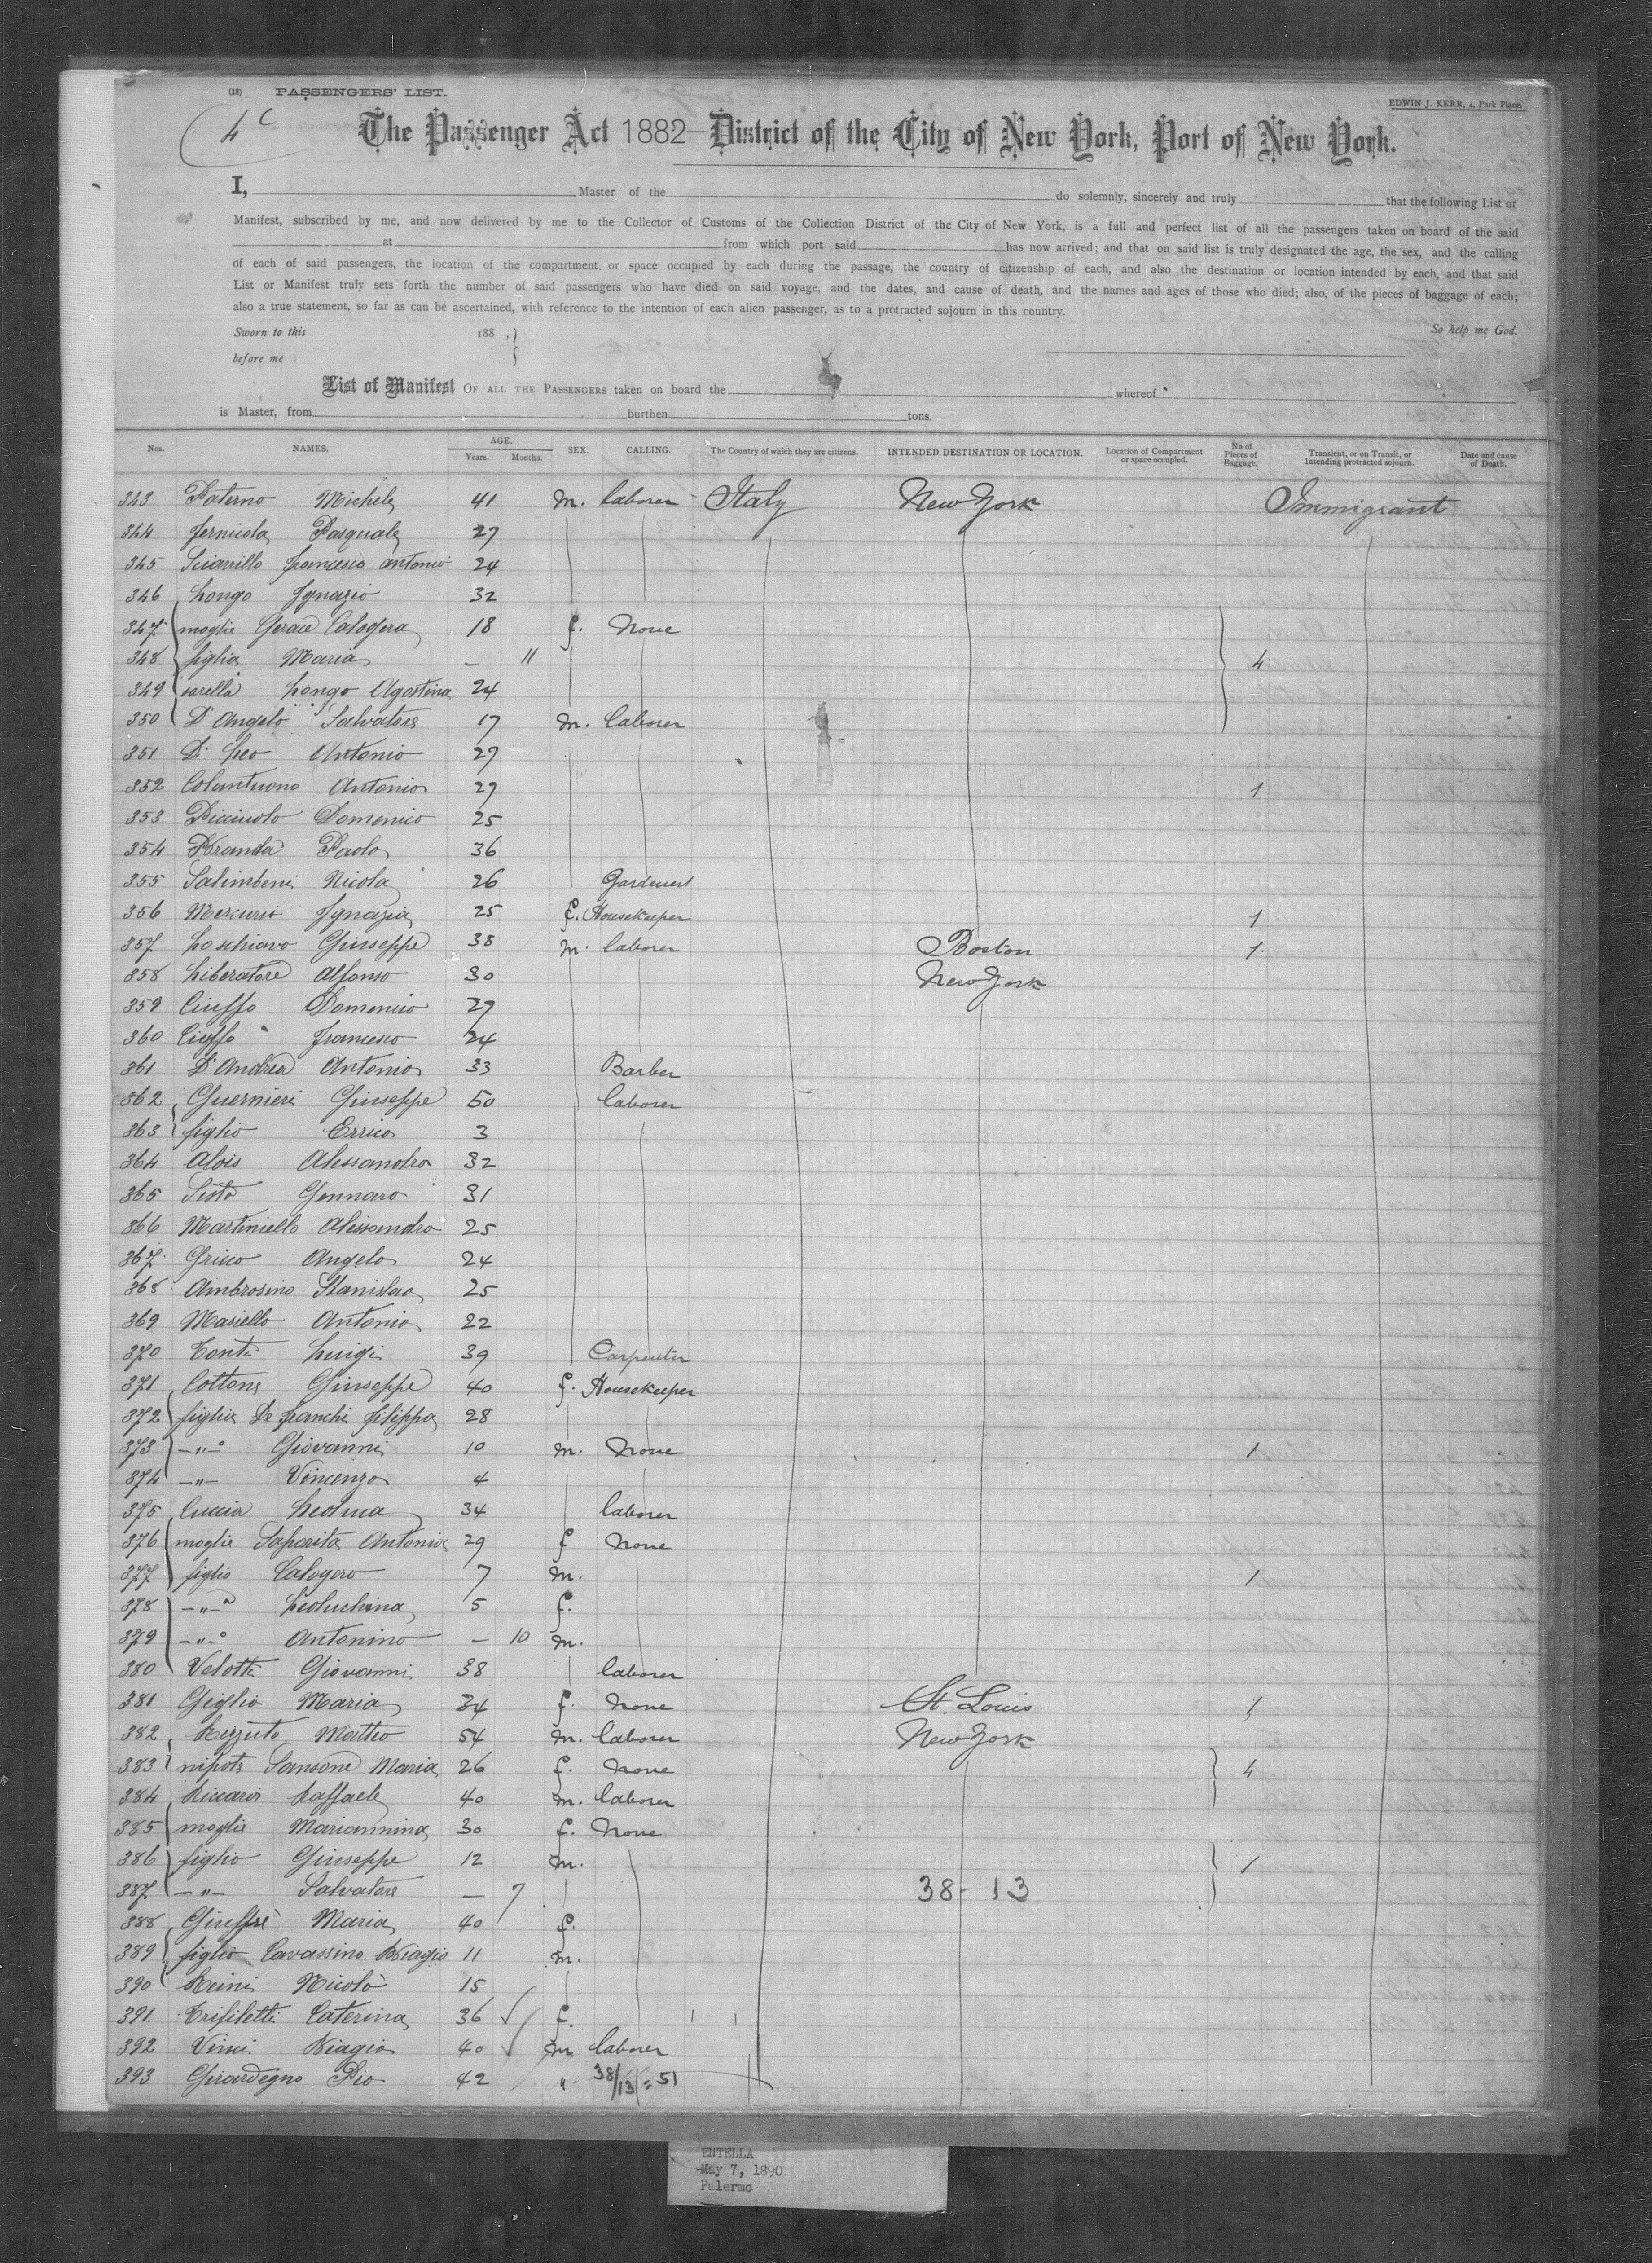 (18) PASSENGERS' LIST.
EDWIN J. KERR, 4, Park Place.
4 C
The Passenger Act 1882 District of the City of New York, Port of New York.
I, Master of the do solemnly, sincerely and truly that the following List or
Manifest, subscribed by me, and now delivered by me to the Collector of Customs of the Collection District of the City of New York, is a full and perfect list of all the passengers taken on board of the said
at from which port said has now arrived; and that on said list is truly designated the age, the sex, and the calling
of each of said passengers, the location of the compartment or space occupied by each during the passage, the country of citizenship of each, and also the destination or location intended by each, and that said
List or Manifest truly sets forth the number of said passengers who have died on said voyage, and the dates, and cause of death, and the names and ages of those who died; also, of the pieces of baggage of each;
also a true statement, so far as can be ascertained, with reference to the intention of each alien passenger, as to a protracted sojourn in this country.
Sworn to this 188 , So help me God.
before me
List of Manifest OF ALL THE PASSENGERS taken on board the whereof
is Master, from burthen tons.
Nos. NAMES. AGE. Years. Months. SEX. CALLING. The Country of which they are citizens. INTENDED DESTINATION OR LOCATION. Location of Compartment or space occupied. No of Pieces of Baggage. Transient, or on Transit, or Intending protracted sojourn. Date and cause of Death.
343 Paterno Michele 41 m. laborer Italy New York Immigrant
344 Fernicola Pasquale 27
345 Sciarrillo Francesco Antonio 24
346 Longo Ignazio 32
347 moglie Gerace Calogera 18 f. None
348 figlia Maria — 11 4
349 sorella Longo Agostina 24
350 D'Angelo Salvatore 17 m. laborer
351 Di Leo Antonio 27
352 Colantuono Antonio 29 1
353 Picciuolo Domenico 25
354 Branda Paolo 36
355 Salimbeni Nicola 26 Gardener
356 Mercurio Ignazia 25 f. Housekeeper 1
357 Loschiavo Giuseppe 38 m. laborer Boston 1
358 Liberatore Alfonso 30 New York
359 Ciuffo Domenico 29
360 Ciuffo Francesco 24
361 D'Andrea Antonio 33 Barber
362 Guernieri Giuseppe 50 laborer
363 figlio Errico 3
364 Alois Alessandro 32
365 Sisto Gennaro 31
366 Martiniello Alessandro 25
367 Grieco Angelo 24
368 Ambrosino Stanislao 25
369 Masiello Antonio 22
370 Conti Luigi 39 Carpenter
371 Cottone Giuseppe 40 f. Housekeeper
372 figlia De Franchi Filippa 28
373 —"—o Giovanni 10 m. None 1
374 —"— Vincenzo 4
375 Cuccia Leoluca 34 laborer
376 moglie Saporita Antonia 29 f None
377 figlio Calogero 7 m. 1
378 —"—a Leoluchina 5 f.
379 —"—o Antonino — 10 m.
380 Velotti Giovanni 38 laborer
381 Giglio Maria 34 f. None St. Louis 1
382 Rizzuto Matteo 54 m. laborer New York
383 nipote Sansone Maria 26 f. None 4
384 Riccardi Raffaele 40 m. laborer
385 moglie Mariannina 30 f. None
386 figlio Giuseppe 12 m. 1
387 —"— Salvatore — 7 38-13
388 Giuffrè Maria 40 f.
389 figlio Cavassino Biagio 11 m.
390 Reini Nicolò 15
391 Trifiletti Caterina 36 f.
392 Vinci Biagio 40 m laborer
393 Girardegno Pio 42 " 38/13 = 51
ENTELLA
May 7, 1890
Palermo